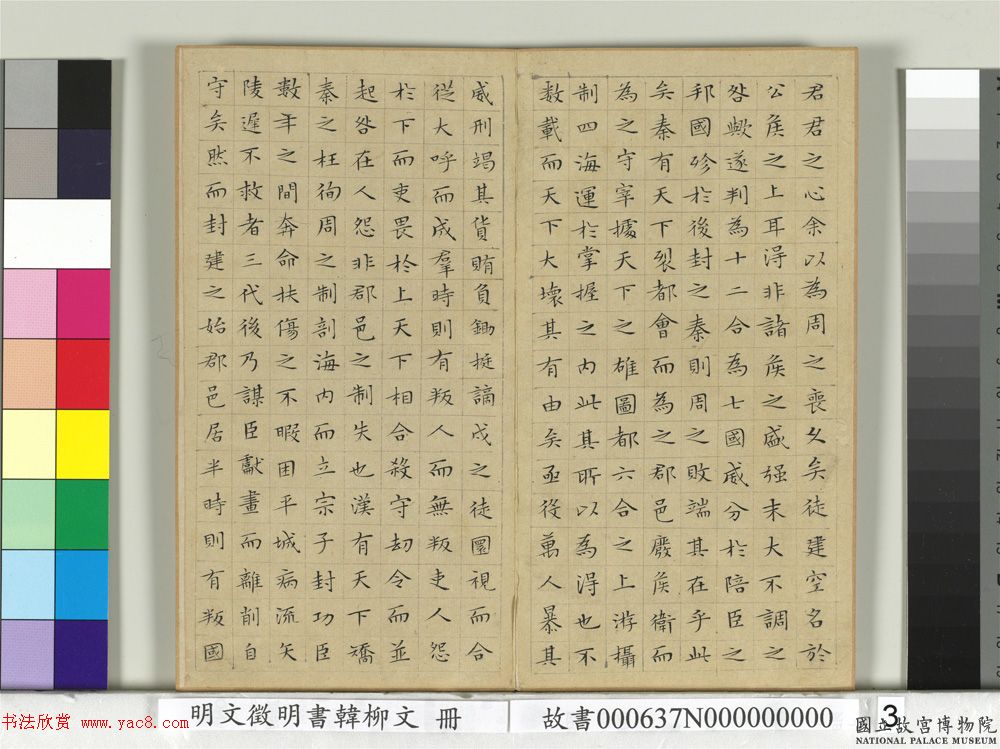 君君之心余以為周之喪久矣徒建空名於
公矦之上耳淂非諸矦之盛强末大不調之
咎歟遂判為十二合為七國威分於陪臣之
邦國殄於後封之秦則周之敗端其在乎此
矣秦有天下裂都會而為之郡邑廢矦衛而
為之守宰據天下之雄圖都六合之上游攝
制四海運於掌握之内此其所以為淂也不
數載而天下大壞其有由矣亟役萬人暴其
威刑竭其貨賄負鋤梃謫戍之徒圜視而合
從大呼而成羣時則有叛人而無叛吏人怨
於下而吏畏於上天下相合殺守刧令而並
起咎在人怨非郡邑之制失也漢有天下矯
秦之枉徇周之制剖海内而立宗子封功臣
數年之間奔命扶傷之不暇困平城病流矢
陵遲不救者三代後乃謀臣獻畫而離削自
守矣然而封建之始郡邑居半時則有叛國
明文徵明書韓柳文 冊
故書000637N000000000
3
书法欣赏 www.yac8.com
國立故宮博物院
NATIONAL PALACE MUSEUM